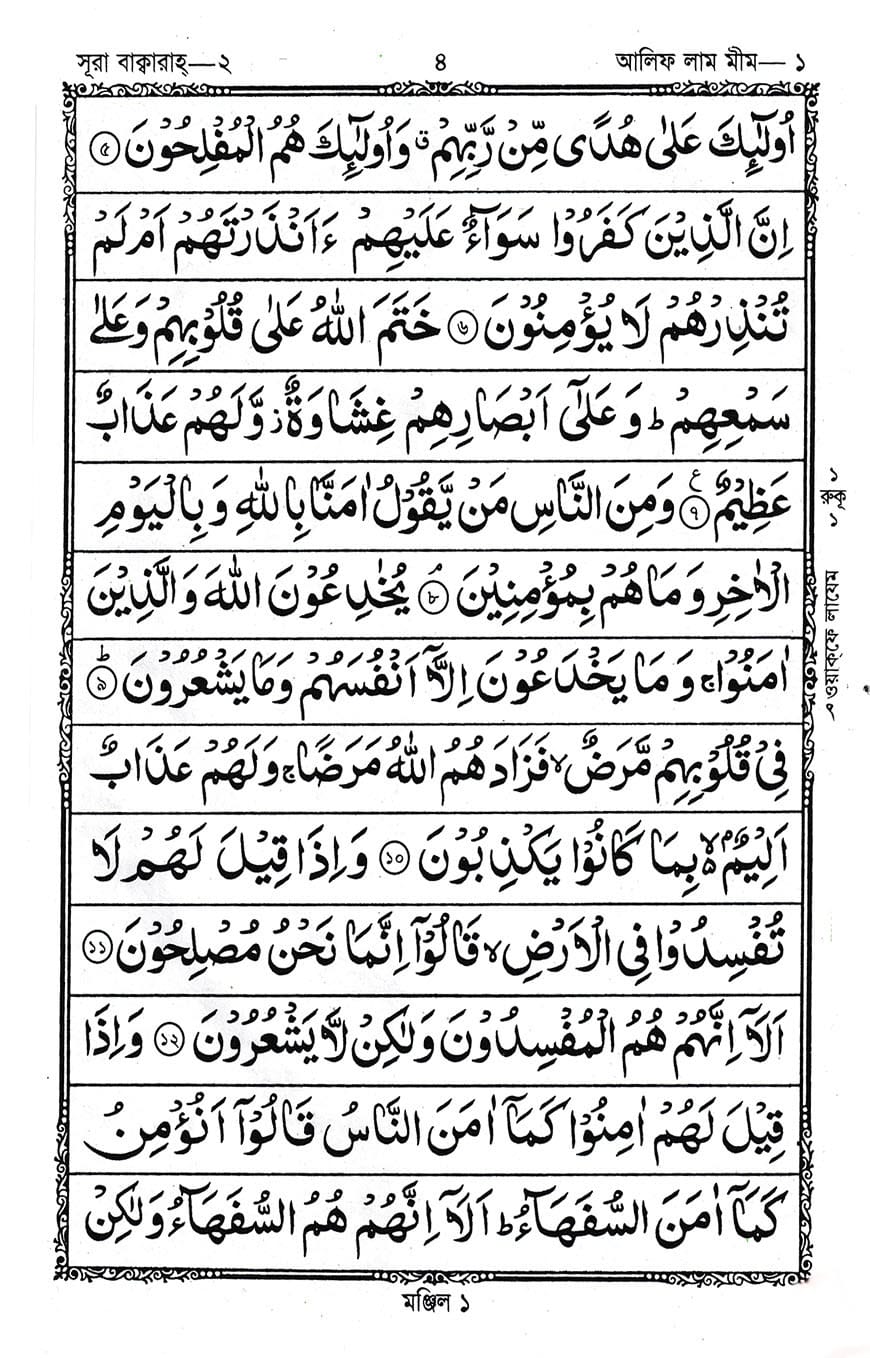 সূরা বাক্বারাহ্—২ ৪ আলিফ লাম মীম— ১
اُولٰٓئِكَ عَلٰى هُدًى مِّنْ رَّبِّهِمْ ۗ وَاُولٰٓئِكَ هُمُ الْمُفْلِحُوْنَ ৫
اِنَّ الَّذِيْنَ كَفَرُوْا سَوَآءٌ عَلَيْهِمْ ءَاَنْذَرْتَهُمْ اَمْ لَمْ
تُنْذِرْهُمْ لَا يُؤْمِنُوْنَ ৬ خَتَمَ اللهُ عَلٰى قُلُوْبِهِمْ وَعَلٰى
سَمْعِهِمْ ط وَعَلٰٓى اَبْصَارِهِمْ غِشَاوَةٌ ز وَّلَهُمْ عَذَابٌ
عَظِيْمٌ ৭ ع وَمِنَ النَّاسِ مَنْ يَّقُوْلُ اٰمَنَّا بِاللهِ وَبِالْيَوْمِ
الْاٰخِرِ وَمَا هُمْ بِمُؤْمِنِيْنَ ۘ ৮ يُخٰدِعُوْنَ اللهَ وَالَّذِيْنَ
اٰمَنُوْا ج وَمَا يَخْدَعُوْنَ اِلَّآ اَنْفُسَهُمْ وَمَا يَشْعُرُوْنَ ط ৯
فِىْ قُلُوْبِهِمْ مَّرَضٌ لا فَزَادَهُمُ اللهُ مَرَضًا ج وَلَهُمْ عَذَابٌ
اَلِيْمٌۢ ۵ لا بِمَا كَانُوْا يَكْذِبُوْنَ ১০ وَاِذَا قِيْلَ لَهُمْ لَا
تُفْسِدُوْا فِى الْاَرْضِ لا قَالُوْٓا اِنَّمَا نَحْنُ مُصْلِحُوْنَ ১১
اَلَآ اِنَّهُمْ هُمُ الْمُفْسِدُوْنَ وَلٰكِنْ لَّا يَشْعُرُوْنَ ১২ وَاِذَا
قِيْلَ لَهُمْ اٰمِنُوْا كَمَآ اٰمَنَ النَّاسُ قَالُوْٓا اَنُؤْمِنُ
كَمَآ اٰمَنَ السُّفَهَآءُ ط اَلَآ اِنَّهُمْ هُمُ السُّفَهَآءُ وَلٰكِنْ
১
রুকূ
১
م ওয়াক্বফে লাযেম
মঞ্জিল ১